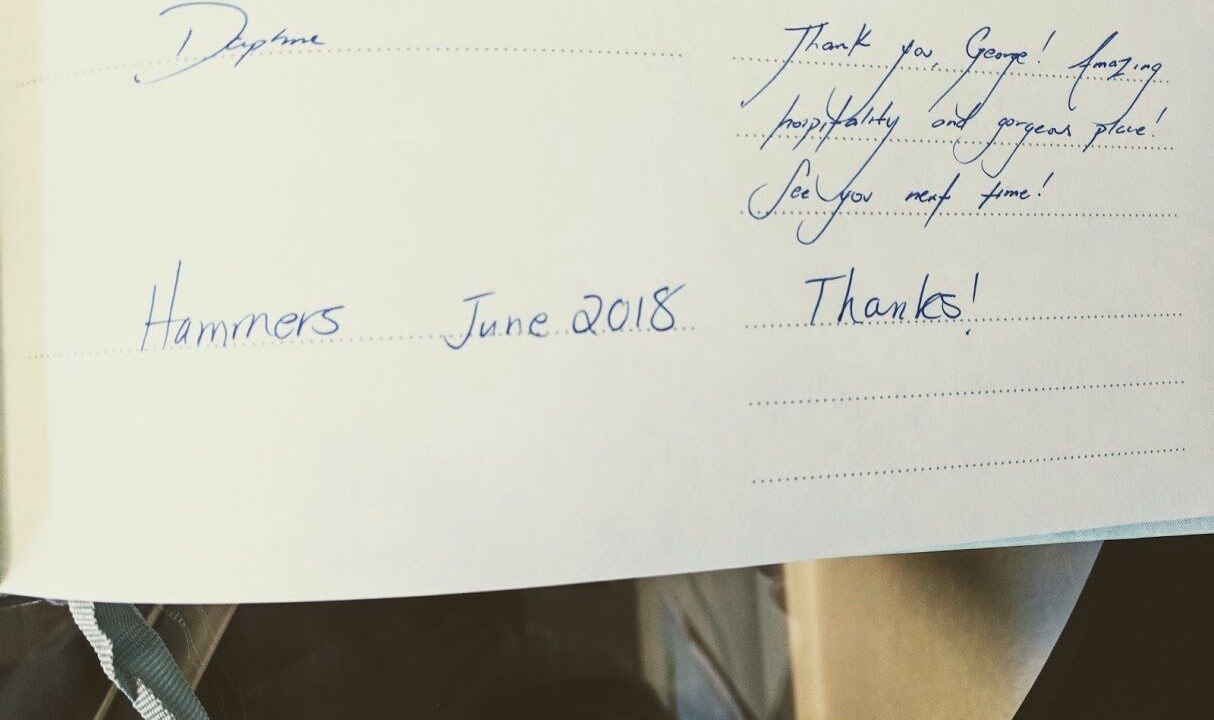 Daphne
Thank you, George! Amazing
hospitality and gorgeous place!
See you next time!
Hammers June 2018 Thanks!